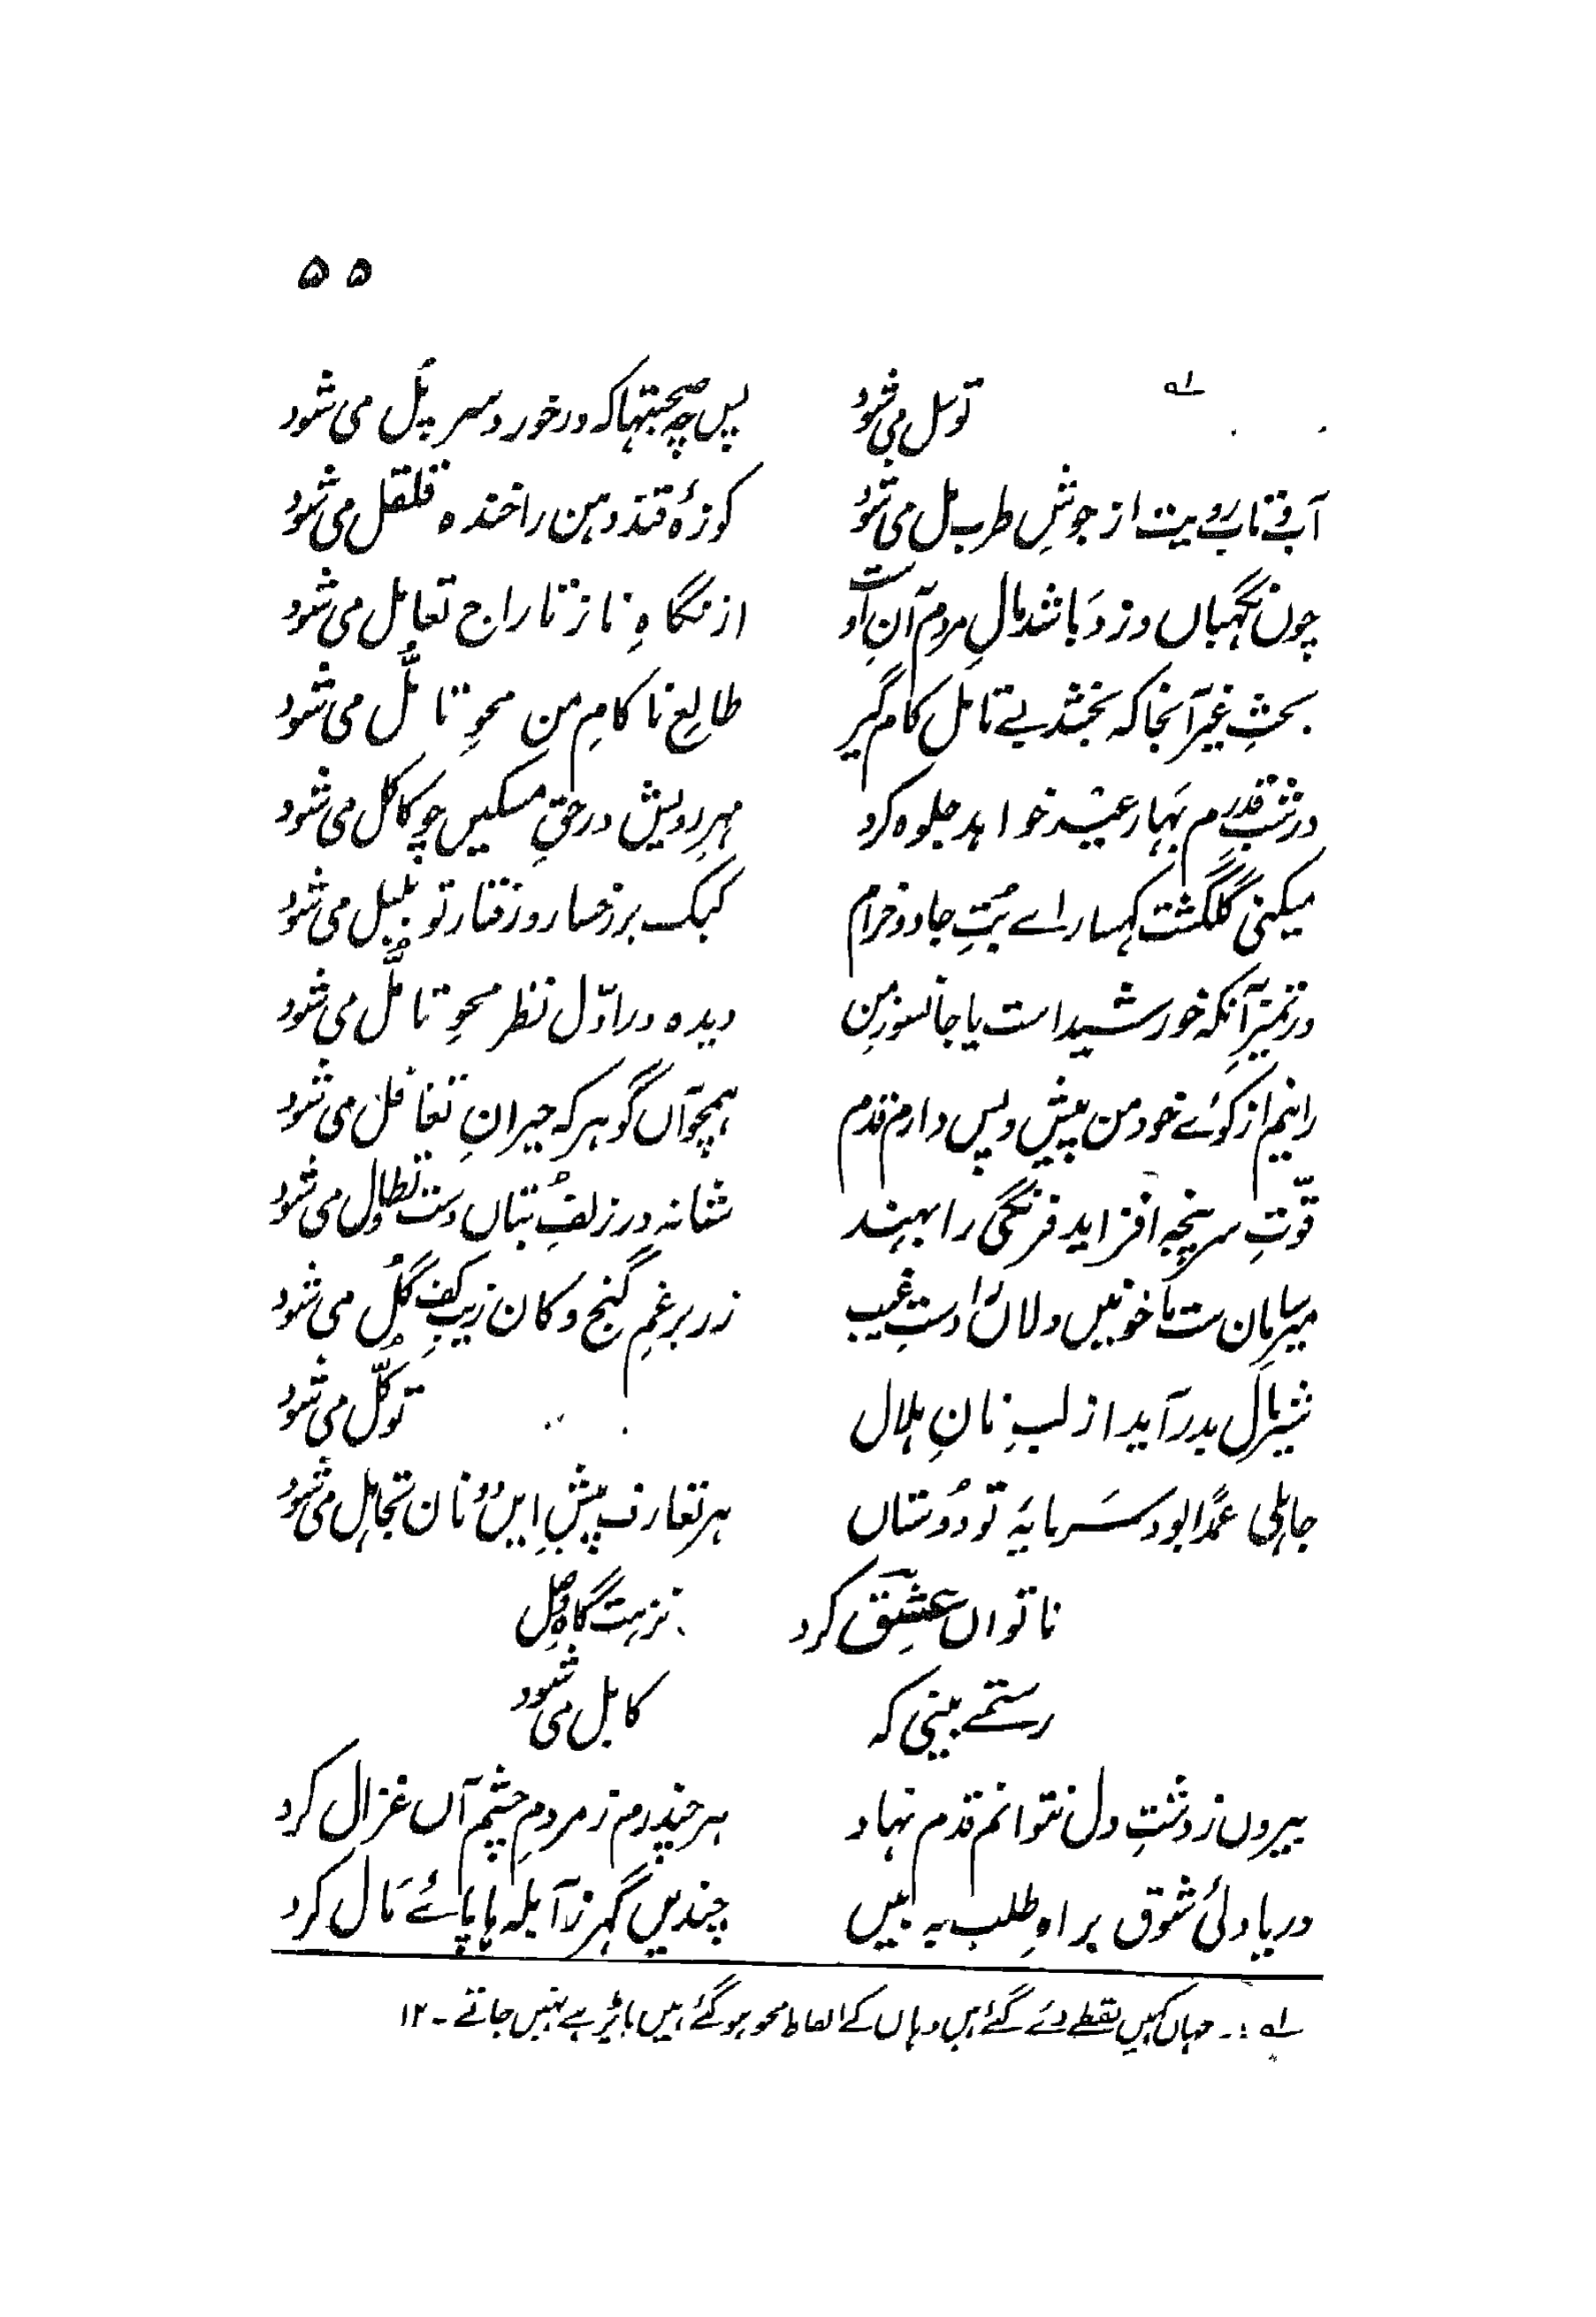 ۵۵
لہ توسل می شود پس چہ صحبتہا کہ در خورد سر پل می شود
آب و تاب رویت از جوشِ طرب مل می شود کوزۂ قند دہن را خندہ قلقل می شود
چون نگہباں دزد باشد مالِ مردم آنِ اوست از نگاہِ ناز تاراج تعامل می شود
بحثِ غیر آنجا کہ بخشد بے تامل کام گیر طالعِ ناکامِ من محوِ تامُّل می شود
در شبِ قدرم بہار عید خواہد جلوہ کرد مہرِ رویش در حقِ مسکیں چو کاکل می شود
میکنی گلگشت کہسار اے بُتِ جادو خرام کبک بر رخسار و رفتار تو بلبل می شود
در تمیزِ آنکہ خورشید است یا جانسوزِ من دیدہ در اوّل نظر محوِ تامُّل می شود
راہیم از کوئے خود من پیش و پس دارم قدم ہمچو آں گوہر کہ حیرانِ تغافل می شود
قوّتِ سرپنجہ افزاید فرنگی را بہند شانہ در زلفِ بتاں دست تطاول می شود
میر سامان ست ما خونیں دلاں را دستِ غیب زر برغمِ گنج و کان زیبِ کفِ گُل می شود
شیرمال بدر آید از لبِ نانِ ہلال توکُّل می شود
جاہلی عمداً بود سرمایۂ تو دوستاں ہر تعارف پیشِ ایں دونان تجاہل می شود
ناتواں عشق کرد نزہت گاہِ دل
رستمے بینی کہ کابل می شود
بیروں ز دشتِ دل نتوانم قدم نہاد ہر چند رم ز مردمِ چشم آں غزال کرد
دریا دلیٔ شوق براہِ طلب بہ بیں چندیں گہر ز آبلہ ہا پائے مال کرد
لہ :۔ جہاں کہیں نقطے دئے گئے ہیں وہاں کے الفاظ محو ہو گئے ہیں یا پڑہے نہیں جاتے ۔ ۱۲